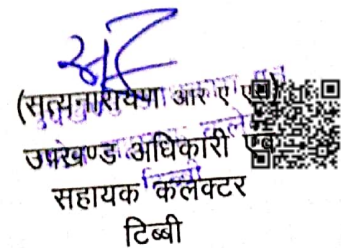 (सत्यनारायण आर ए एस)
उपखण्ड अधिकारी एवं
सहायक कलेक्टर
टिब्बी